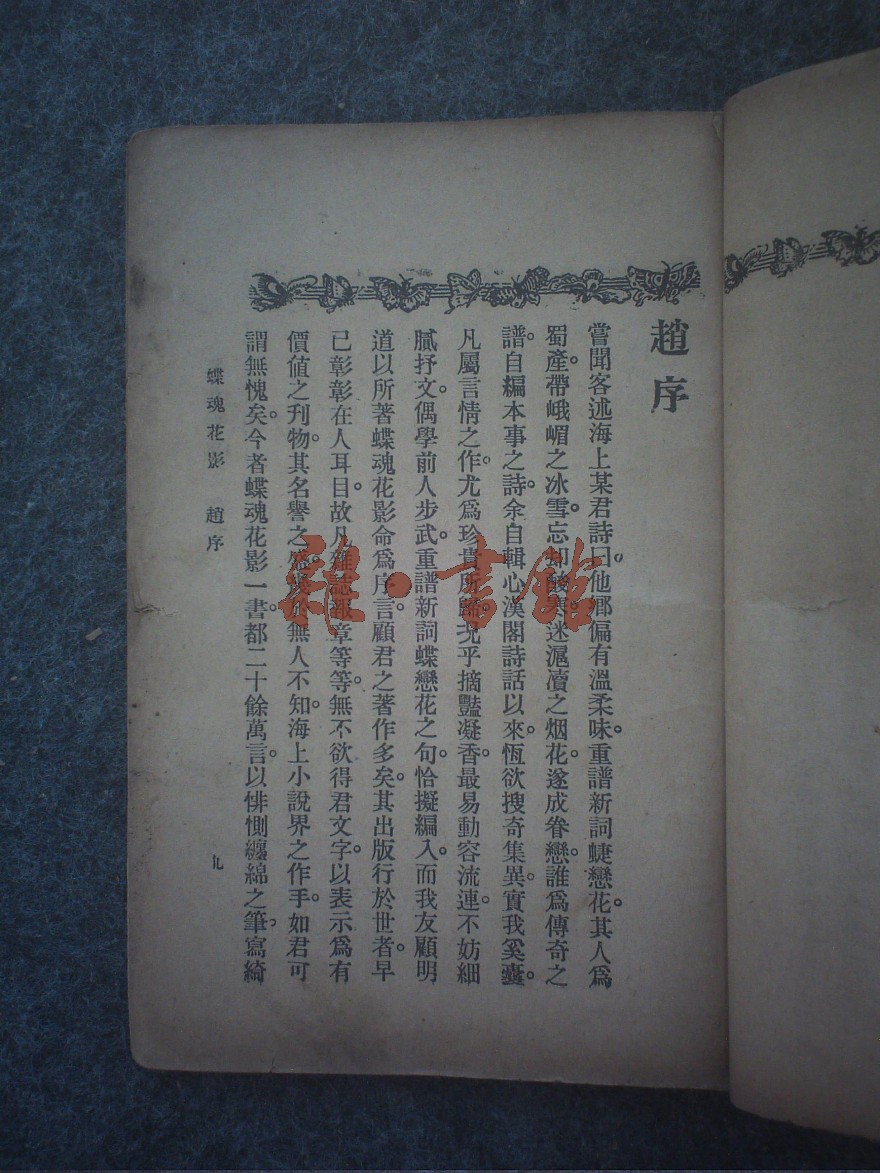 趙序
嘗聞客述海上某君詩曰他鄉偏有溫柔味。重譜新詞蜨戀花。其人爲
蜀產。帶峨嵋之冰雪。忘却酸寒。迷滬瀆之烟花。遂成眷戀。誰爲傳奇之
譜。自編本事之詩。余自輯心漢閣詩話以來。恆欲搜奇集異。實我奚囊。
凡屬言情之作。尤爲珍貴所歸。況乎摘豔凝香。最易動容流連。不妨細
膩抒文。偶學前人步武。重譜新詞蝶戀花之句。恰擬編入。而我友顧明
道以所著蝶魂花影命爲序言。顧君之著作多矣。其出版行於世者。早
已彰彰在人耳目。故凡雜誌報章等等。無不欲得君文字。以表示爲有
價值之刋物。其名譽之盛。幾於無人不知。海上小說界之作手。如君可
謂無愧矣。今者蝶魂花影一書。都二十餘萬言。以悱惻纏綿之筆。寫綺
蝶魂花影 趙序
九
雜·書館